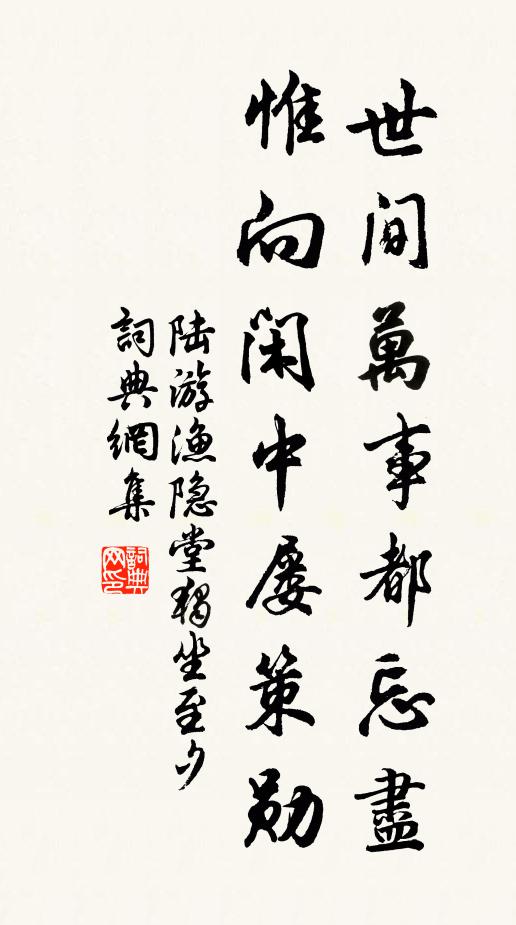 世間萬事都忘盡
惟向閑中屢策勋
陆游漁隐堂獨坐至夕
詞典網集
詞典网印